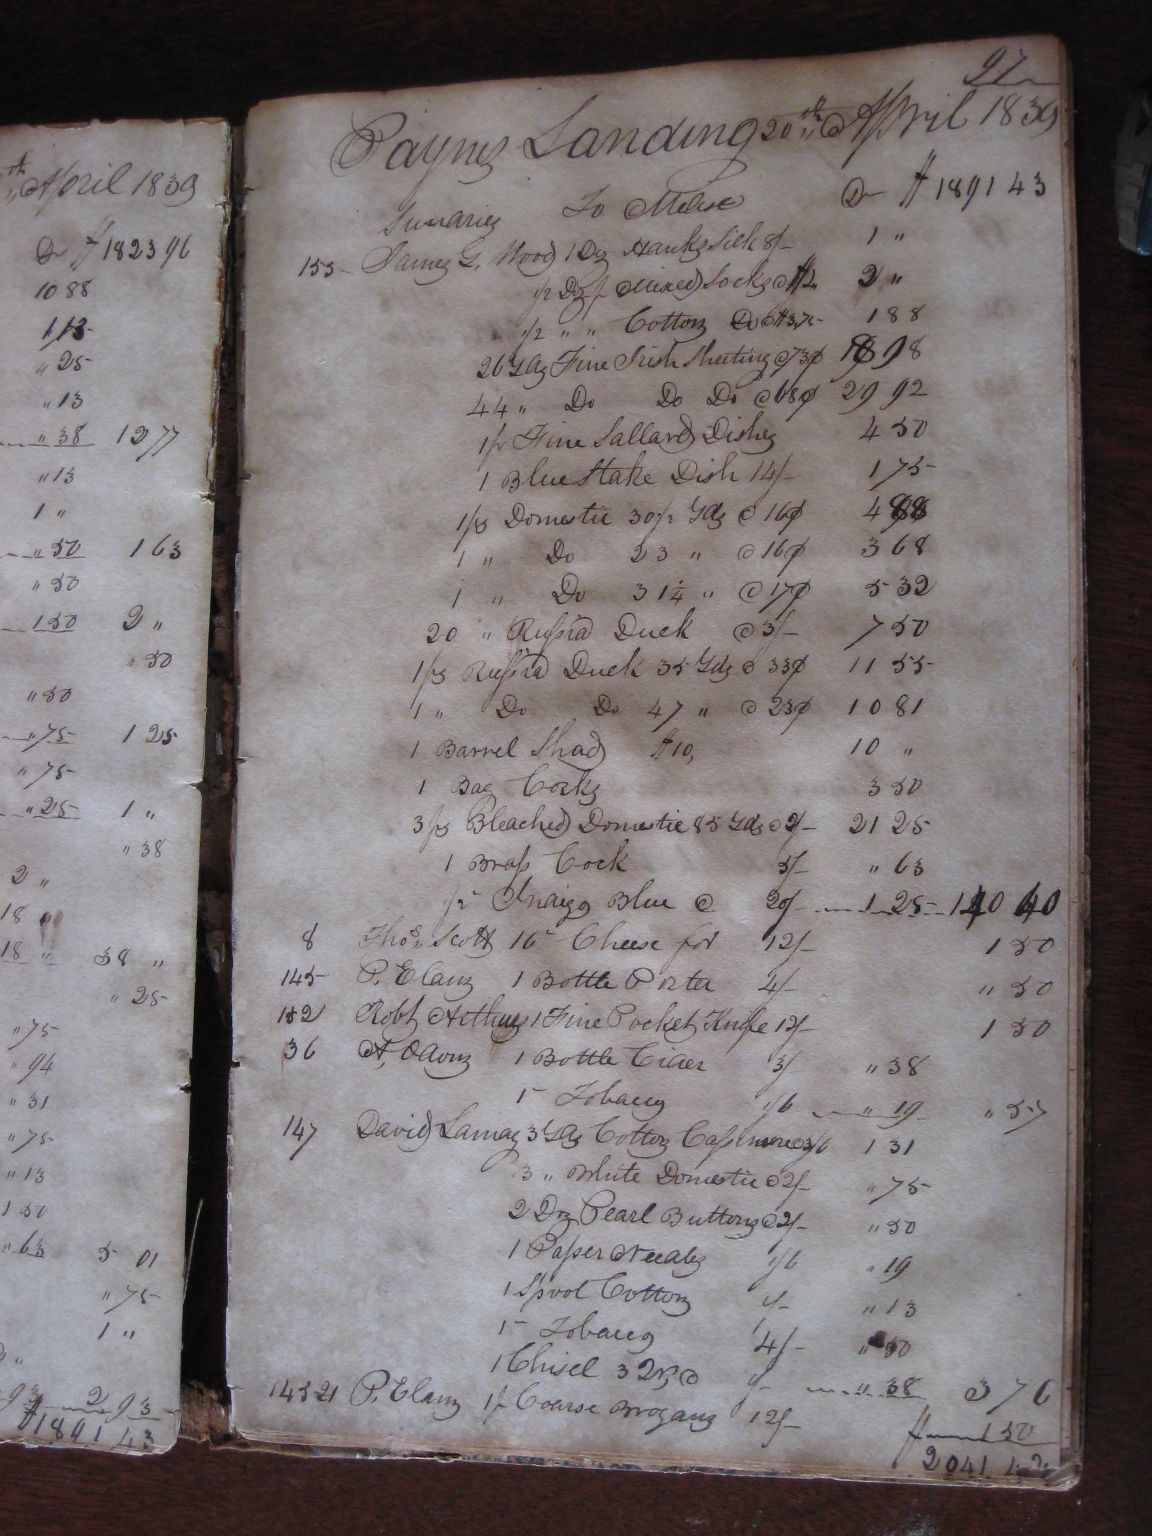 th April 1839
Dr $ 1823 96
10 88
1 13
" 25
" 13
" 38 12 77
" 13
1 "
" 50 1 63
" 50
1 50 2 "
" 50
" 50
" 75 1 25
" 75
" 25 1 "
" 38
2 "
18 "
18 " 38 "
" 25
" 75
" 94
" 31
" 75
" 13
1 50
" 63 5 01
" 75
1 "
2 93
$ 1891 43
97
Paynes Landing 20th April 1839
Sundries To Mdse Dr $ 1891 43
155 James G. Wood 1 Dz Hanks Silk 8/- 1 "
1/2 Dz Mixed Socks @ $4 2 "
1/2 " " Cotton Do @ $3,75 1 88
26 Yds Fine Irish Sheeting @ 73¢ 18 98
44 " Do Do Do @ 68¢ 29 92
1 pr Fine Sallard Dishes 4 50
1 Blue Stake Dish 14/- 1 75
1 ps Domestic 30 1/2 Yds @ 16¢ 4 88
1 " Do 23 " @ 16¢ 3 68
1 " Do 31 1/4 " @ 17¢ 5 32
20 " Russia Duck @ 3/- 7 50
1 ps Russia Duck 35 Yds @ 33¢ 11 55
1 " Do Do 47 " @ 23¢ 10 81
1 Barrel Shad $10, 10 "
1 Bag Corks 3 50
3 ps Bleached Domestic 85 Yds @ 2/- 21 25
1 Brass Cock 5/- " 63
1/2 Indigo Blue @ 20/- 1 25 140 40
8 Thos. Scott 16 Cheese for 12/- 1 50
145 P. Elam 1 Bottle Porter 4/- " 50
152 Robt Arthurs 1 Fine Pocket Knife 12/- 1 50
36 1 Bottle Cider 3/ " 38
1 Tobacco 1/6 " 19 " 57
147 David Lamaz 3 1/2 Yds Cotton Cassimere @ 3/6 1 31
3 " White Domestic @ 2/- " 75
2 Dz Pearl Buttons @ 2/- " 50
1 Paper Needles 1/6 " 19
1 Spool Cotton 1/- " 13
1 Tobacco 4/- " 50
1 Chisel " 38 3 76
P. Elam 1 pr Coarse Brogans 12/- 1 50
$ 2041